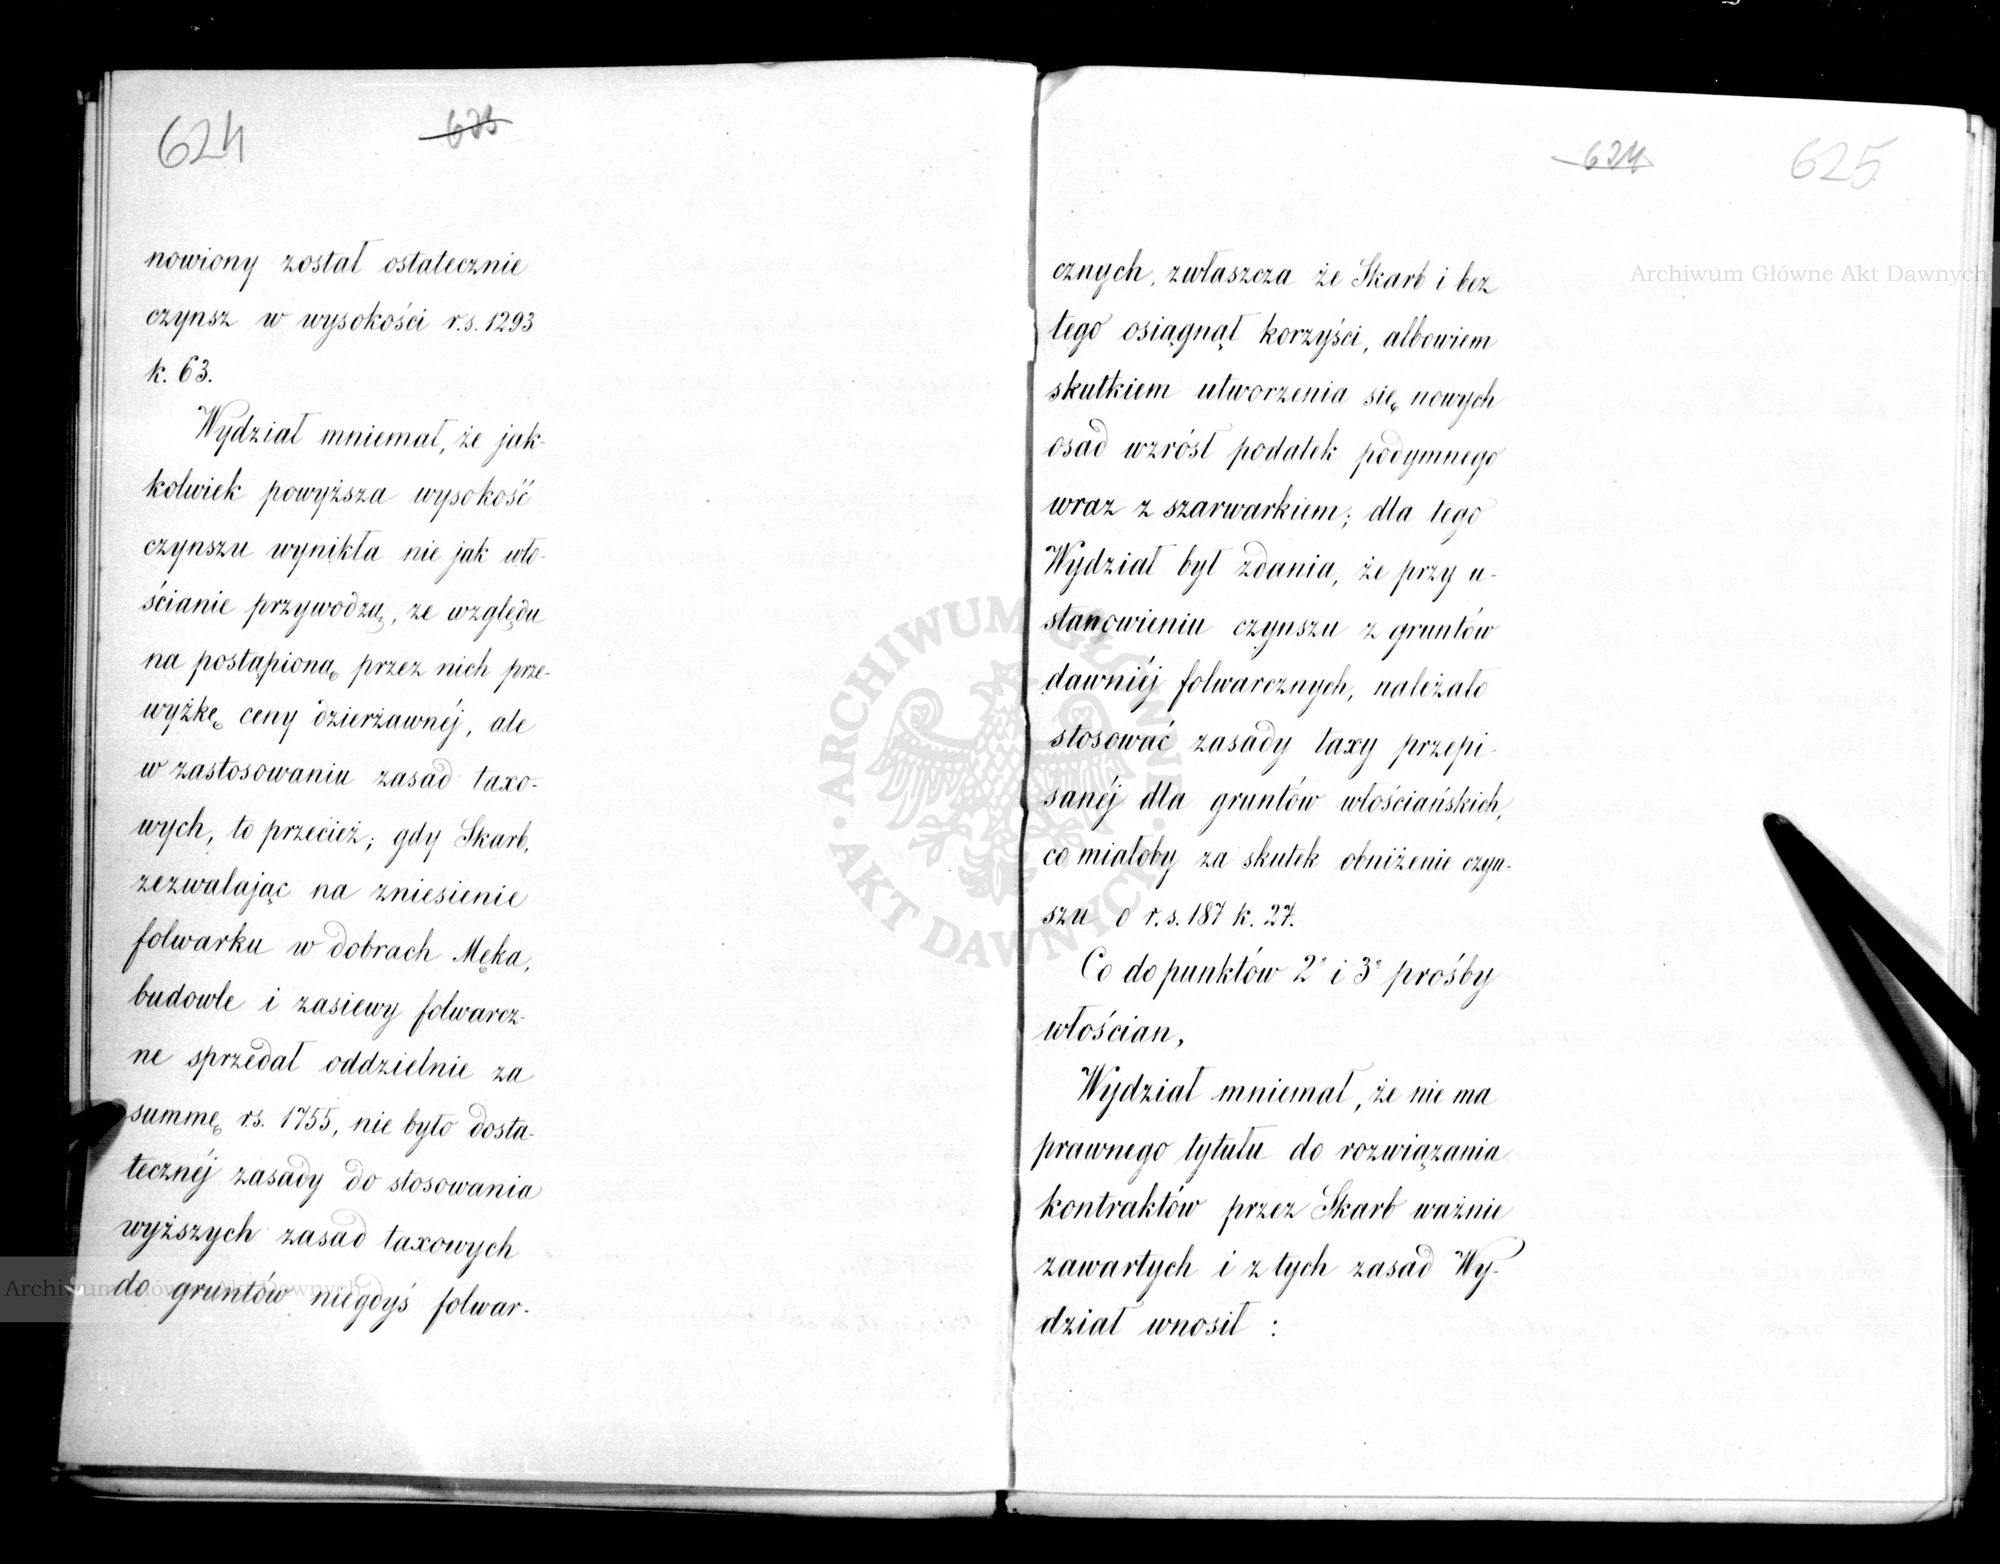 624
623
nowiony został ostatecznie
czynsz w wysokości r.s. 1293
k. 63.
Wydział mniemał, że jak-
kolwiek powyższa wysokość
czynszu wynikła nie jak wło-
ścianie przywodzą, ze względu
na postąpioną przez nich prze-
wyżkę ceny dzierżawnéj, ale
w zastosowaniu zasad taxo-
wych, to przecież; gdy Skarb,
zezwalając na zniesienie
folwarku w dobrach Męka,
budowle i zasiewy folwarcz-
ne sprzedał oddzielnie za
summę rs. 1755, nie było dosta-
tecznéj zasady do stosowania
wyższych zasad taxowych
do gruntów niegdyś folwar-
624
625
cznych, zwłaszcza że Skarb i bez
tego osiągnął korzyści, albowiem
skutkiem utworzenia się nowych
osad wzrósł podatek podymnego
wraz z szarwarkiem; dla tego
Wydział był zdania, że przy u-
stanowieniu czynszu z gruntów
dawniéj folwarcznych, należało
stosować zasady taxy przepi-
sanéj dla gruntów włościańskich,
co miałoby za skutek obniżenie czyn-
szu o r.s. 187 k. 27.
Co do punktów 2° i 3° prośby
włościan,
Wydział mniemał, że nie ma
prawnego tytułu do rozwiązania
kontraktów przez Skarb ważnie
zawartych i z tych zasad Wy-
dział wnosił :
Archiwum Główne Akt Dawnych
ARCHIWUM GŁÓWNE
AKT DAWNYCH
Archiwum Główne Akt Dawnych